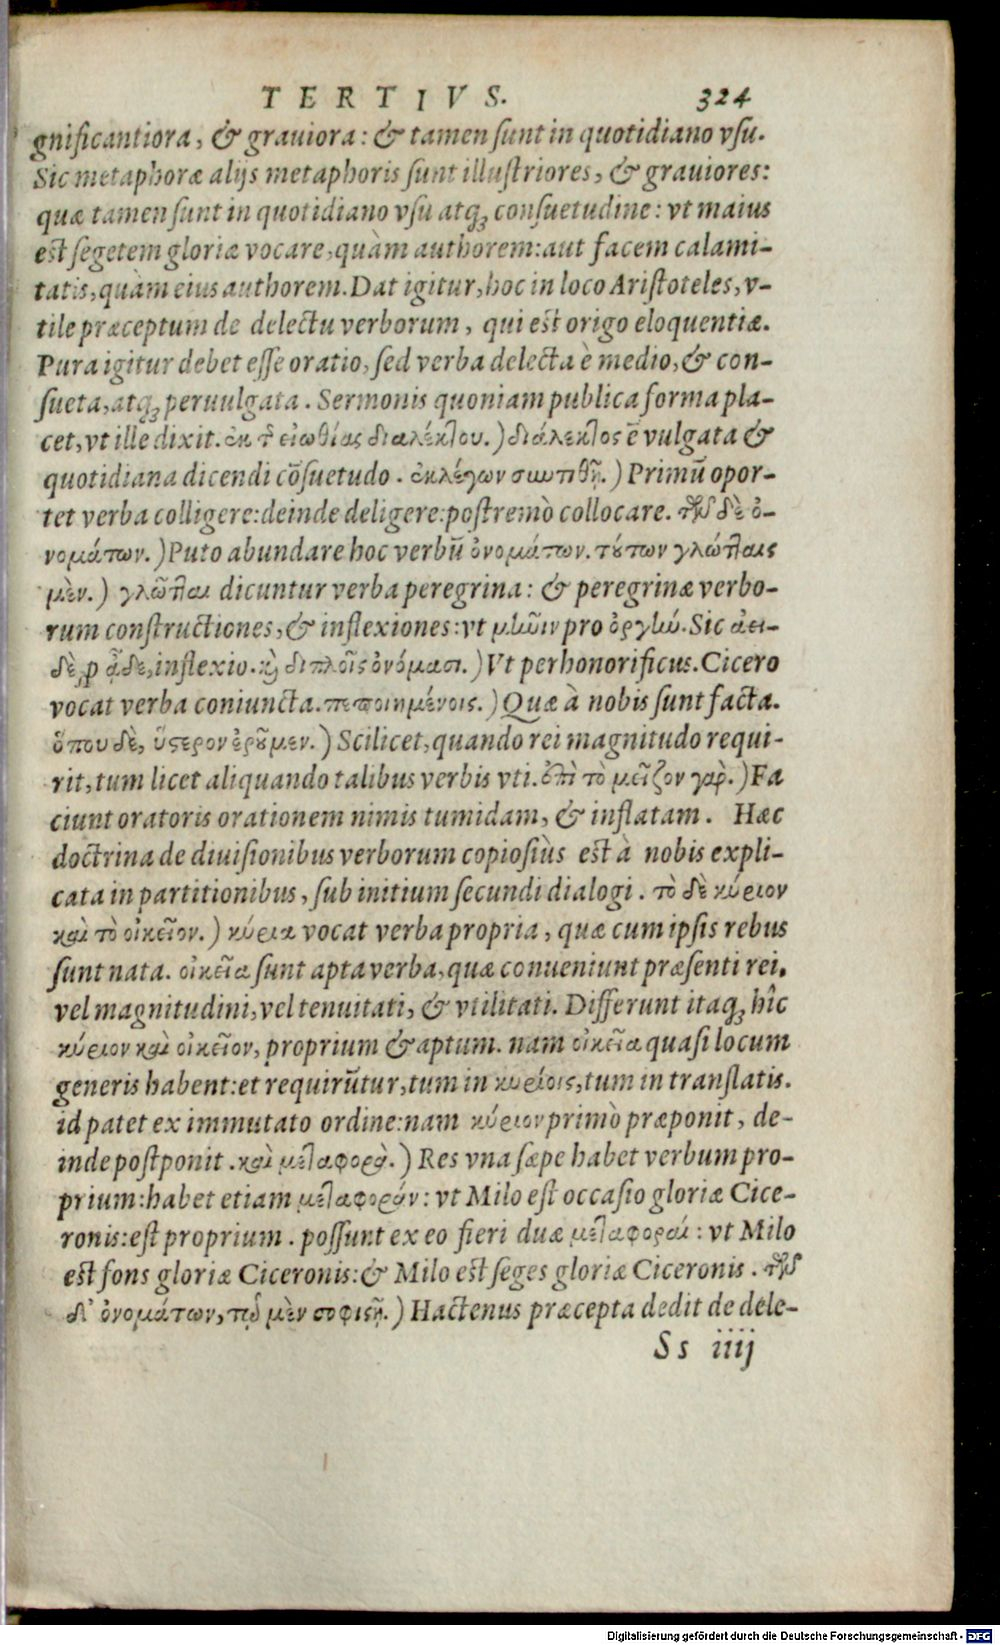 TERTIVS. 324
gnificantiora, & grauiora: & tamen sunt in quotidiano vsu.
Sic metaphoræ alijs metaphoris sunt illustriores, & grauiores:
quæ tamen sunt in quotidiano vsu atq; consuetudine: vt maius
est segetem gloriæ vocare, quàm authorem: aut facem calami-
tatis, quàm eius authorem. Dat igitur, hoc in loco Aristoteles, v-
tile præceptum de delectu verborum, qui est origo eloquentiæ.
Pura igitur debet esse oratio, sed verba delecta è medio, & con-
sueta, atq; peruulgata. Sermonis quoniam publica forma pla-
cet, vt ille dixit. ἐκ τῆς εἰωθίας διαλέκτου.) διάλεκτος ē vulgata &
quotidiana dicendi cōsuetudo. ἐκλέγων συντιθῇ.) Primū opor-
tet verba colligere: deinde deligere: postremò collocare. τῶν δὲ ὀ-
νομάτων.) Puto abundare hoc verbū ὀνομάτων. τούτων γλώτταις
μὲν.) γλῶτται dicuntur verba peregrina: & peregrinæ verbo-
rum constructiones, & inflexiones: vt μῆνιν pro ὀργήν. Sic ἀει-
δὲ, p ᾆδε, inflexio. καὶ διπλοῖς ὀνόμασι.) Vt perhonorificus. Cicero
vocat verba coniuncta. πεποιημένοις.) Quæ à nobis sunt facta.
ὅπου δὲ, ὕστερον ἐροῦμεν.) Scilicet, quando rei magnitudo requi-
rit, tum licet aliquando talibus verbis vti. ἐπὶ τὸ μεῖζον γὰρ.) Fa
ciunt oratoris orationem nimis tumidam, & inflatam. Hæc
doctrina de diuisionibus verborum copiosiùs est à nobis expli-
cata in partitionibus, sub initium secundi dialogi. τὸ δὲ κύριον
καὶ τὸ οἰκεῖον.) κύρια vocat verba propria, quæ cum ipsis rebus
sunt nata. οἰκεῖα sunt apta verba, quæ conueniunt præsenti rei,
vel magnitudini, vel tenuitati, & vtilitati. Differunt itaq; hîc
κύριον καὶ οἰκεῖον, proprium & aptum. nam οἰκεῖα quasi locum
generis habent: et requirūtur, tum in κυρίοις, tum in translatis.
id patet ex immutato ordine: nam κύριον primò præponit, de-
inde postponit. καὶ μεταφορὰ.) Res vna sæpe habet verbum pro-
prium: habet etiam μεταφοράν: vt Milo est occasio gloriæ Cice-
ronis: est proprium. possunt ex eo fieri duæ μεταφοραί: vt Milo
est fons gloriæ Ciceronis: & Milo est seges gloriæ Ciceronis. τῶν
δ' ὀνομάτων, τῷ μὲν σοφιστῇ.) Hactenus præcepta dedit de dele-
Ss iiij
Digitalisierung gefördert durch die Deutsche Forschungsgemeinschaft - DFG